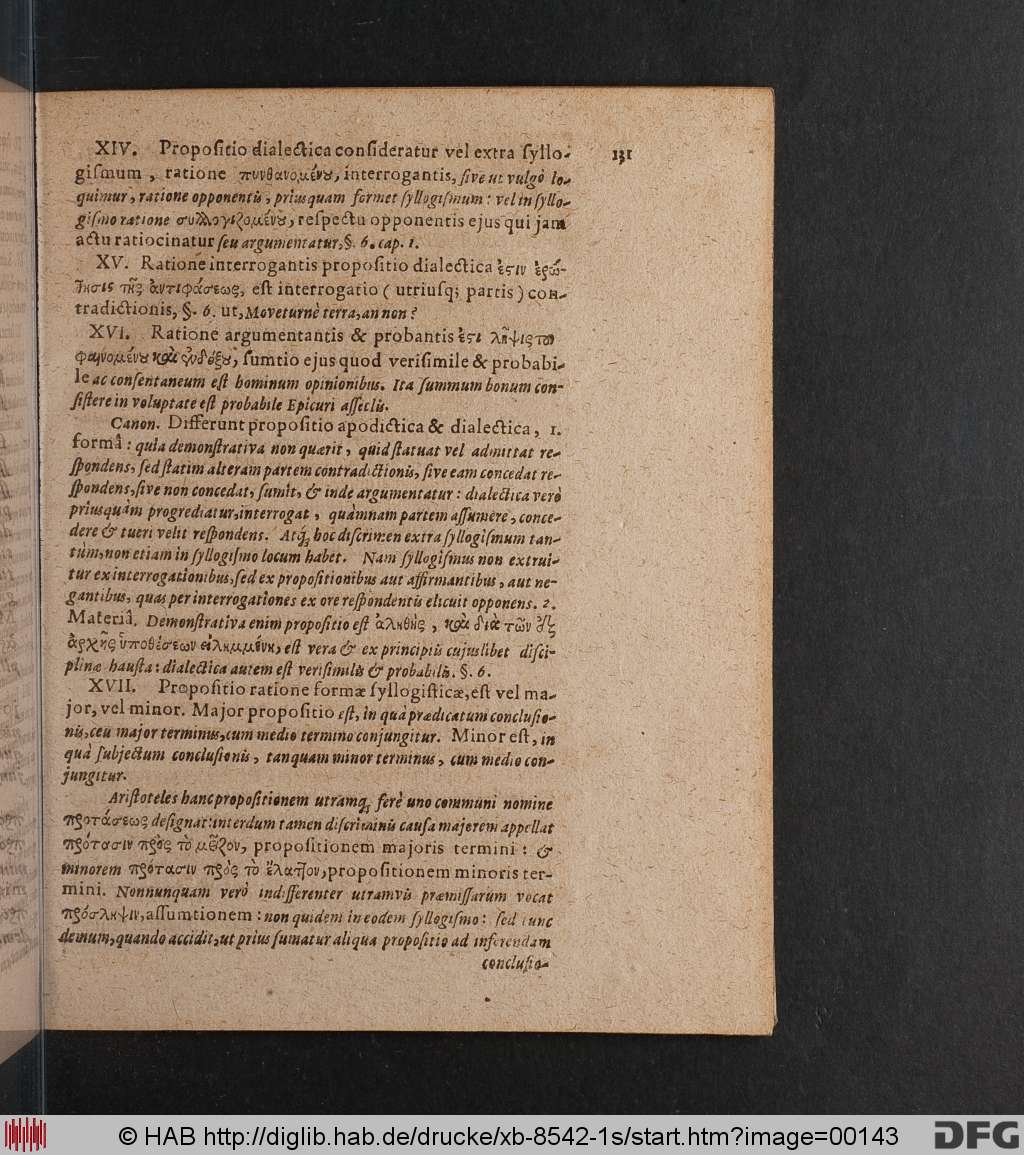 131
XIV. Propoſitio dialectica conſideratur vel extra ſyllo-
giſmum, ratione πυνθανομένου, interrogantis, ſive ut vulgò lo-
quimur, ratione opponentis, priusquam formet ſyllogiſmum: vel in ſyllo-
giſmo ratione συλλογιζομένου, reſpectu opponentis ejus qui jam
actu ratiocinatur ſeu argumentatur, §. 6. cap. 1.
XV. Ratione interrogantis propoſitio dialectica ἐστιν ἐρώ-
τησις τῆς ἀντιφάσεως, eſt interrogatio (utriuſq; partis) con-
tradictionis, §. 6. ut, Moveturnè terra, an non?
XVI. Ratione argumentantis & probantis ἐστι λῆψις τοῦ
φαινομένου καὶ ἐνδόξου, ſumtio ejus quod veriſimile & probabi-
le ac conſentaneum eſt hominum opinionibus. Ita ſummum bonum con-
ſiſtere in voluptate eſt probabile Epicuri aſſeclis.
Canon. Differunt propoſitio apodictica & dialectica, 1.
formâ: quia demonſtrativa non quærit, quid ſtatuat vel admittat re-
ſpondens, ſed ſtatim alteram partem contradictionis, ſive eam concedat re-
ſpondens, ſive non concedat, ſumit, & inde argumentatur: dialectica verò
priusquàm progrediatur, interrogat, quàmnam partem aſſumere, conce-
dere & tueri velit reſpondens. Atq; hoc diſcrimen extra ſyllogiſmum tan-
tùm, non etiam in ſyllogiſmo locum habet. Nam ſyllogiſmus non extrui-
tur ex interrogationibus, ſed ex propoſitionibus aut affirmantibus, aut ne-
gantibus, quas per interrogationes ex ore reſpondentis elicuit opponens. 2.
Materiâ. Demonſtrativa enim propoſitio eſt ἀληθὴς, καὶ διὰ τῶν ἐξ
ἀρχῆς ὑποθέσεων εἰλημμένη, eſt vera & ex principiis cujuslibet diſci-
plinæ hauſta: dialectica autem eſt veriſimilis & probabilis. §. 6.
XVII. Propoſitio ratione formæ ſyllogiſticæ, eſt vel ma-
jor, vel minor. Major propoſitio eſt, in quâ prædicatum concluſio-
nis, ceu major terminus, cum medio termino conjungitur. Minor eſt, in
quâ ſubjectum concluſionis, tanquam minor terminus, cum medio con-
jungitur.
Ariſtoteles hanc propoſitionem utramq; ferè uno communi nomine
προτάσεως deſignat: interdum tamen diſcriminis cauſa majorem appellat
πρότασιν πρὸς τὸ μεῖζον, propoſitionem majoris termini: &
minorem πρότασιν πρὸς τὸ ἔλαττον, propoſitionem minoris ter-
mini. Nonnunquam verò indifferenter utramvis præmiſſarum vocat
πρόσληψιν, aſſumtionem: non quidem in eodem ſyllogiſmo: ſed tunc
demum, quando accidit, ut prius ſumatur aliqua propoſitio ad inferendam
concluſio-
© HAB http://diglib.hab.de/drucke/xb-8542-1s/start.htm?image=00143
DFG